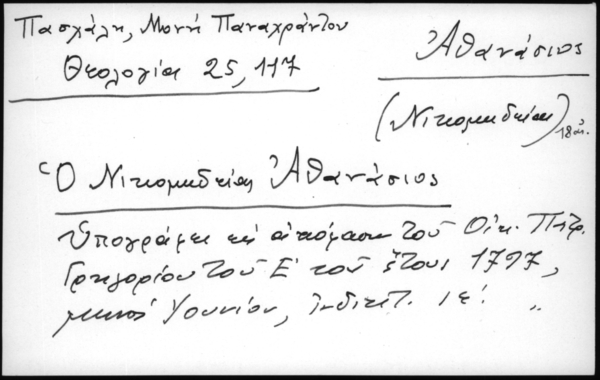 Πασχάλη, Μονή Παναχράντου
Θεολογία 25, 117
Ἀθανάσιος
(Νικομηδείας) 18 αἰ.
Ὁ Νικομηδείας Ἀθανάσιος
Ὑπογράφει εἰς ἀπόφασιν τοῦ Οἰκ. Πατρ.
Γρηγορίου τοῦ Ε' τοῦ ἔτους 1797,
μηνός Ἰουνίου, ἰνδικτ. ιε'.